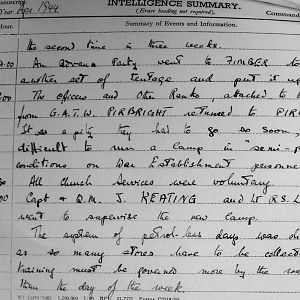 INTELLIGENCE SUMMARY.
(Erase heading not required).
Year. 1944
Summary of Events and Information.
the second time in three weeks.
An advance Party went to TIMBER to
another set of tentage and put it up
The officers and Other Ranks, attached to
from G.A.T.W. PIRBRIGHT returned to PIR
It is a pity they had to go so soon
difficult to run a camp in "semi-p
conditions on War Establishment personne
All church services were voluntary.
Capt & Q.M. J. KEATING and Lt R.S.L
went to supervise the new camp.
The system of petrol-less days was
as so many stores have to be collect
training must be governed more by the
than the day of the week.